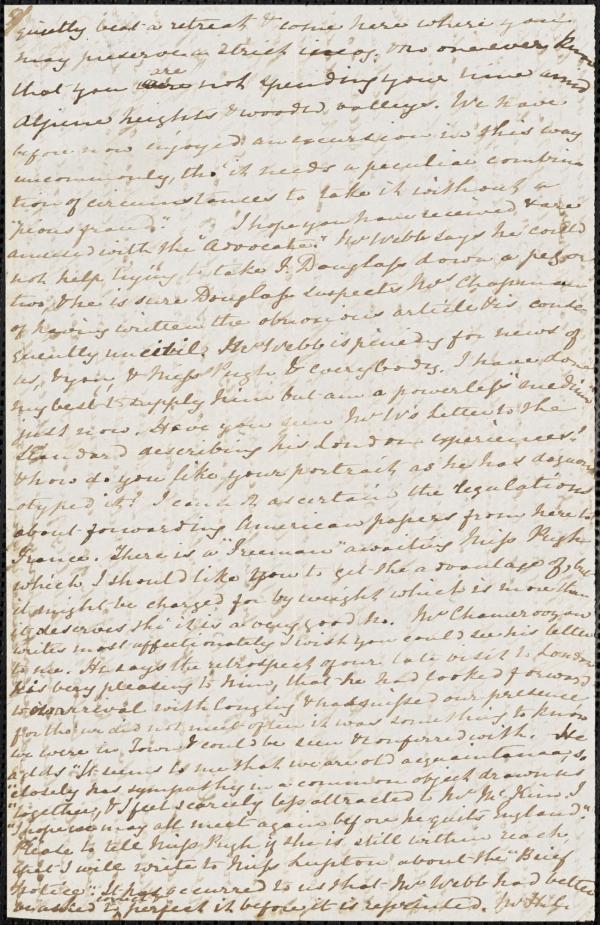 quietly beat a retreat & come here where you
may preserve a strict incog. & no one ever know
that you are not spending your time amid
Alpine heights & wooded valleys. We have
before now enjoyed an excursion in this way
uncommonly, tho' it needs a peculiar combina
tion of circumstances to take it without a
"pious fraud." I hope you have received & are
amused with the "Advocate." Mr Webb says he could
not help trying to take F. Douglass down a peg or
two, & he is sure Douglass suspects Mrs Chapman
of having written the obnoxious article & is conse
quently uncivil. Mr Webb is pining for news of
us, & you, & Miss Pugh & everybody. I have done
my best to supply him but am a powerless "medium"
just now. Have you seen Mr W's letter to the
Standard describing his London experiences?
& how do you like your portrait as he has daguerre
otyped it? I cannot ascertain the regulations
about forwarding American papers from here to
France. There is a "Freeman" awaiting Miss Pugh
which I should like you to get the advantage of, but
it might be charged for by weight which is more than
it deserves tho' it is a very good no. Mr Chamerovzow
writes most affectionately I wish you could see his letter
to me. He says the retrospect of our late visit to London
is very pleasing to him, that he had looked forward
to our arrival with longing & had missed our presence
for tho' we did not meet often it was something to know
we were in Town & could be seen & conferred with. He
adds "It seems to me that we are old acquaintances, so
"closely has sympathy in a common object drawn us
"together, & I feel scarcely less attracted to Mr McKim. I
"hope we may all meet again before he quits England."
Please to tell Miss Pugh if she is still within reach,
that I will write to Miss Lupton about the "Brief
Notice." It has occurred to us that Mr Webb had better
be asked to correct & perfect it before it is reprinted.